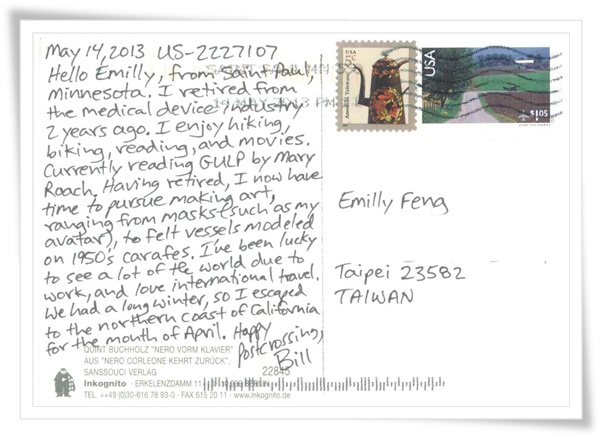 May 14, 2013 US-2227107
Hello Emilly, from Saint Paul,
Minnesota. I retired from
the medical device industry
2 years ago. I enjoy hiking,
biking, reading, and movies.
Currently reading GULP by Mary
Roach. Having retired, I now have
time to pursue making art,
ranging from masks (such as my
avatar), to felt vessels modeled
on 1950's carafes. I've been lucky
to see a lot of the world due to
work, and love international travel.
We had a long winter, so I escaped
to the northern coast of California
for the month of April. Happy
Postcrossing,
Bill
QUINT BUCHHOLZ "NERO VORM KLAVIER"
AUS "NERO CORLEONE KEHRT ZURÜCK",
SANSSOUCI VERLAG
22845
Inkognito · ERKELENZDAMM 11-
BERLIN
TEL. ++49 (0)30-616 78 93-0 · FAX 615 20 11 · www.inkognito.de
USA
5c
American Toleware
USA
$1.05
14 MAY 2013 PM
Emilly Feng
Taipei 23582
TAIWAN